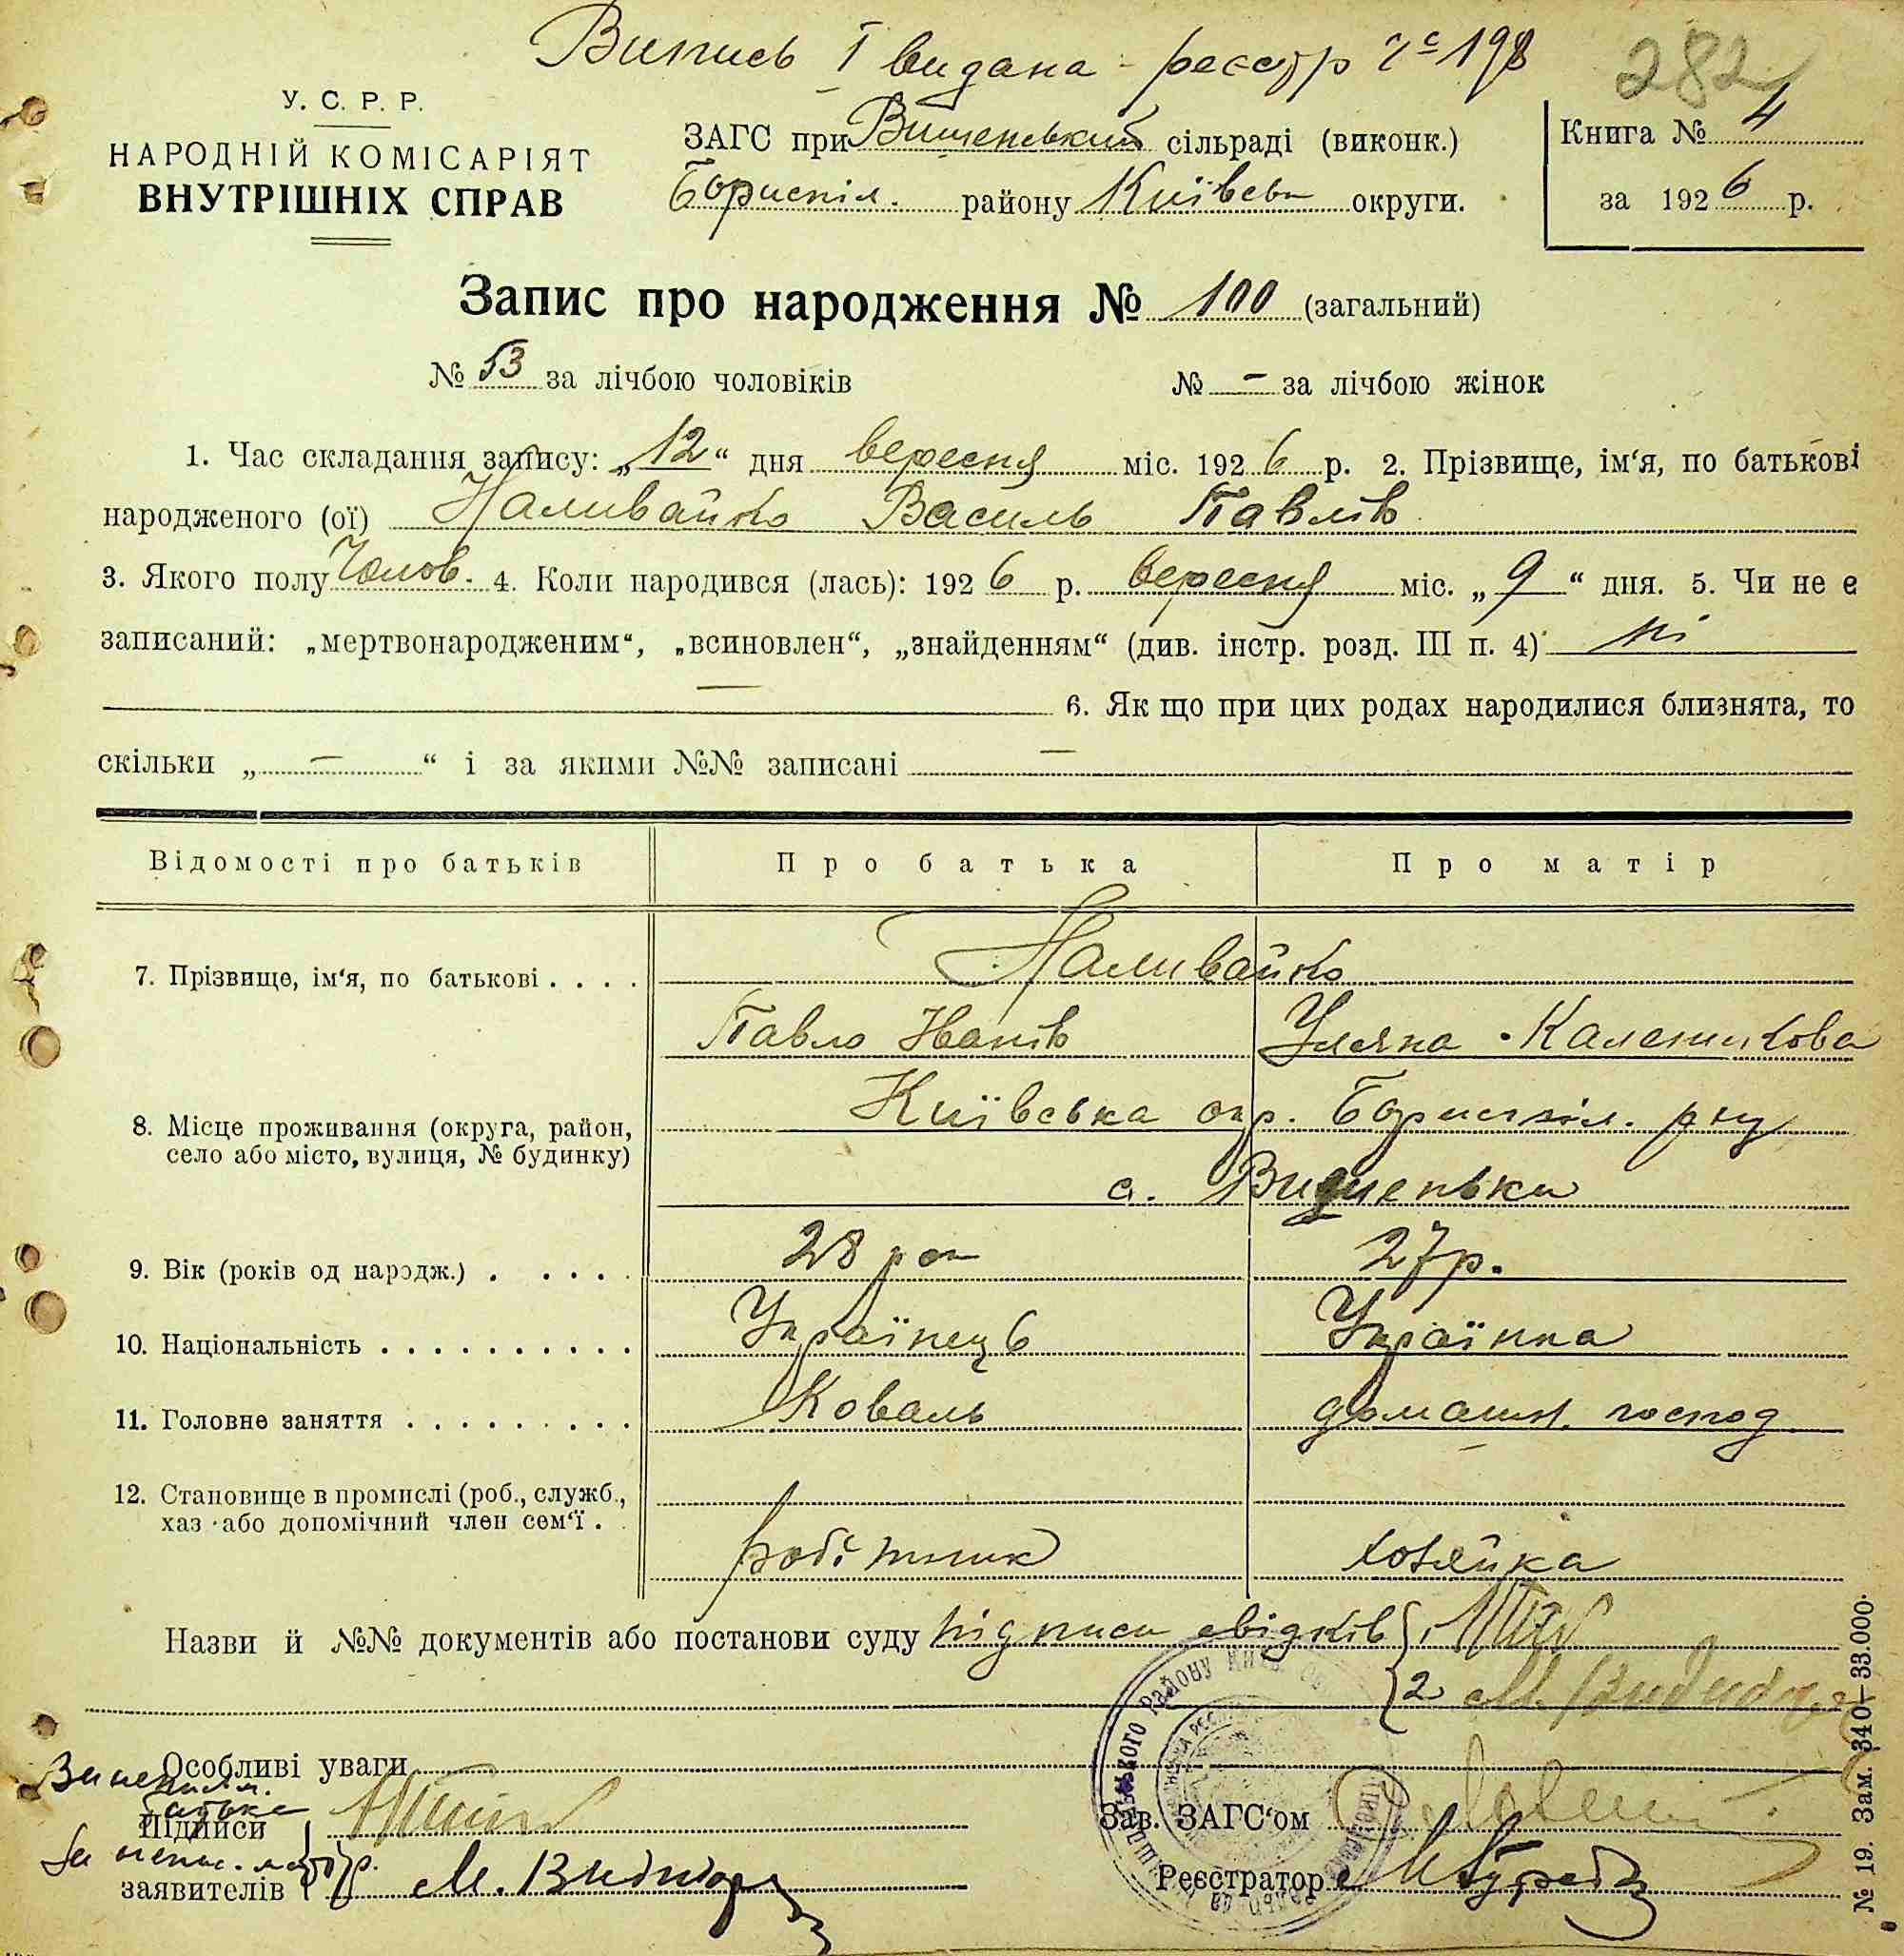 Випись I видана - реєстр № 198
282
У. С. Р. Р.
НАРОДНІЙ КОМІСАРІЯТ
ВНУТРІШНІХ СПРАВ
ЗАГС при Вишеньській сільраді (виконк.)
Бориспіл. району Київськ округи.
Книга № 4
за 1926 р.
Запис про народження № 100 (загальний)
№ 53 за лічбою чоловіків № - за лічбою жінок
1. Час складання запису: „12“ дня вересня міс. 1926 р. 2. Прізвище, ім‘я, по батькові
народженого (ої) Наливайко Василь Павлів
3. Якого полу Чолов. 4. Коли народився (лась): 1926 р. вересня міс. „9“ дня. 5. Чи не є
записаний: „мертвонародженим“, „всиновлен“, „знайденням“ (див. інстр. розд. III п. 4) ні
— 6. Як що при цих родах народилися близнята, то
скільки „—“ і за якими №№ записані —
Відомості про батьків Про батька Про матір
7. Прізвище, ім‘я, по батькові . . . . Наливайко
Павло Іванів Уляна Каленикова
8. Місце проживання (округа, район,
село або місто, вулиця, № будинку)
Київська окр. Бориспіл. р-ну
с. Вишеньки
9. Вік (років од народж.) . . . . . 28 рок 27 р.
10. Національність . . . . . . . . . . Українець Українка
11. Головне заняття . . . . . . . . . Коваль домашн. господ
12. Становище в промислі (роб., служб.,
хаз. або допомічний член сем‘ї . .
робітник хозяйка
Назви й №№ документів або постанови суду підписи свідків 1
2 М.
Особливі уваги
За неписьм.
батька
Підписи
За непис. матір.
заявителів М.
Зав. ЗАГС‘ом
Реєстратор
№ 19. Зам. 340—33.000.